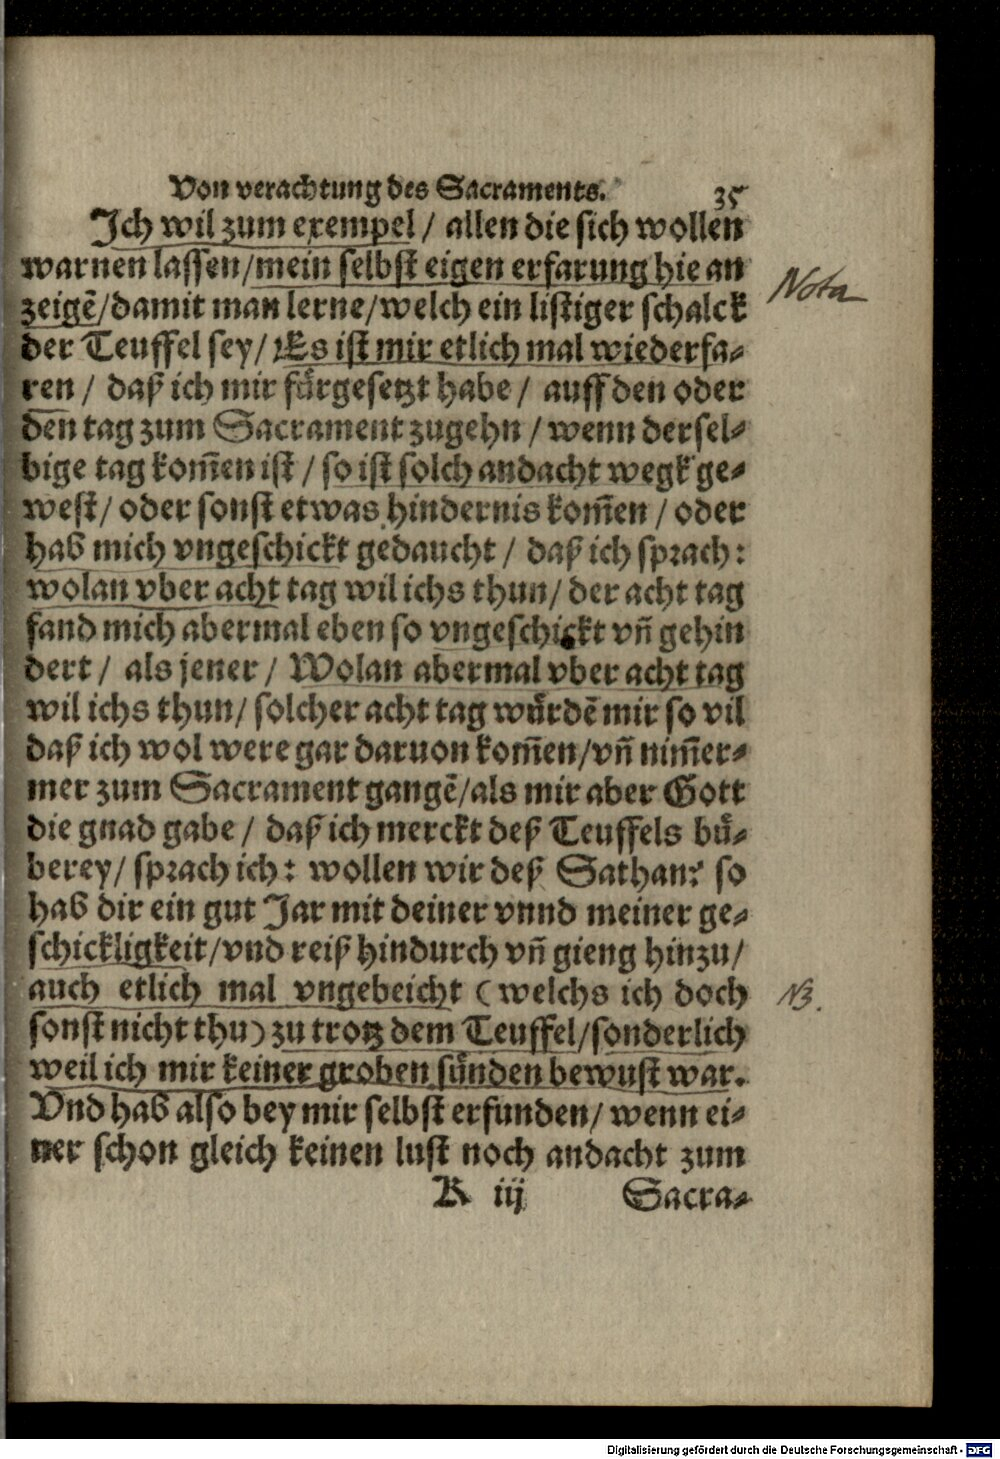 Von verachtung des Sacraments. 35
Ich wil zum exempel / allen die sich wollen
warnen lassen/mein selbst eigen erfarung hie an
zeigē/damit man lerne/welch ein listiger schalck
der Teuffel sey/ Es ist mir etlich mal wiederfa-
ren / daß ich mir fürgesetzt habe / auff den oder
den tag zum Sacrament zugehn / wenn dersel-
bige tag kom̄en ist / so ist solch andacht wegk ge-
west/ oder sonst etwas hindernis kom̄en / oder
hab mich vngeschickt gedaucht / daß ich sprach:
wolan vber acht tag wil ichs thun/ der acht tag
fand mich abermal eben so vngeschickt vn̄ gehin
dert / als jener / Wolan abermal vber acht tag
wil ichs thun/ solcher acht tag würdē mir so vil
daß ich wol were gar daruon kom̄en/vn̄ nim̄er-
mer zum Sacrament gangē/als mir aber Gott
die gnad gabe / daß ich merckt deß Teuffels bü-
berey/ sprach ich: wollen wir deß Sathan? so
hab dir ein gut Jar mit deiner vnnd meiner ge-
schickligkeit/vnd reiß hindurch vn̄ gieng hinzu/
auch etlich mal vngebeicht (welchs ich doch
sonst nicht thu) zu trotz dem Teuffel/sonderlich
weil ich mir keiner groben sünden bewust war.
Vnd hab also bey mir selbst erfunden/ wenn ei-
ner schon gleich keinen lust noch andacht zum
K iij Sacra-
Nota
NB.
Digitalisierung gefördert durch die Deutsche Forschungsgemeinschaft - DFG